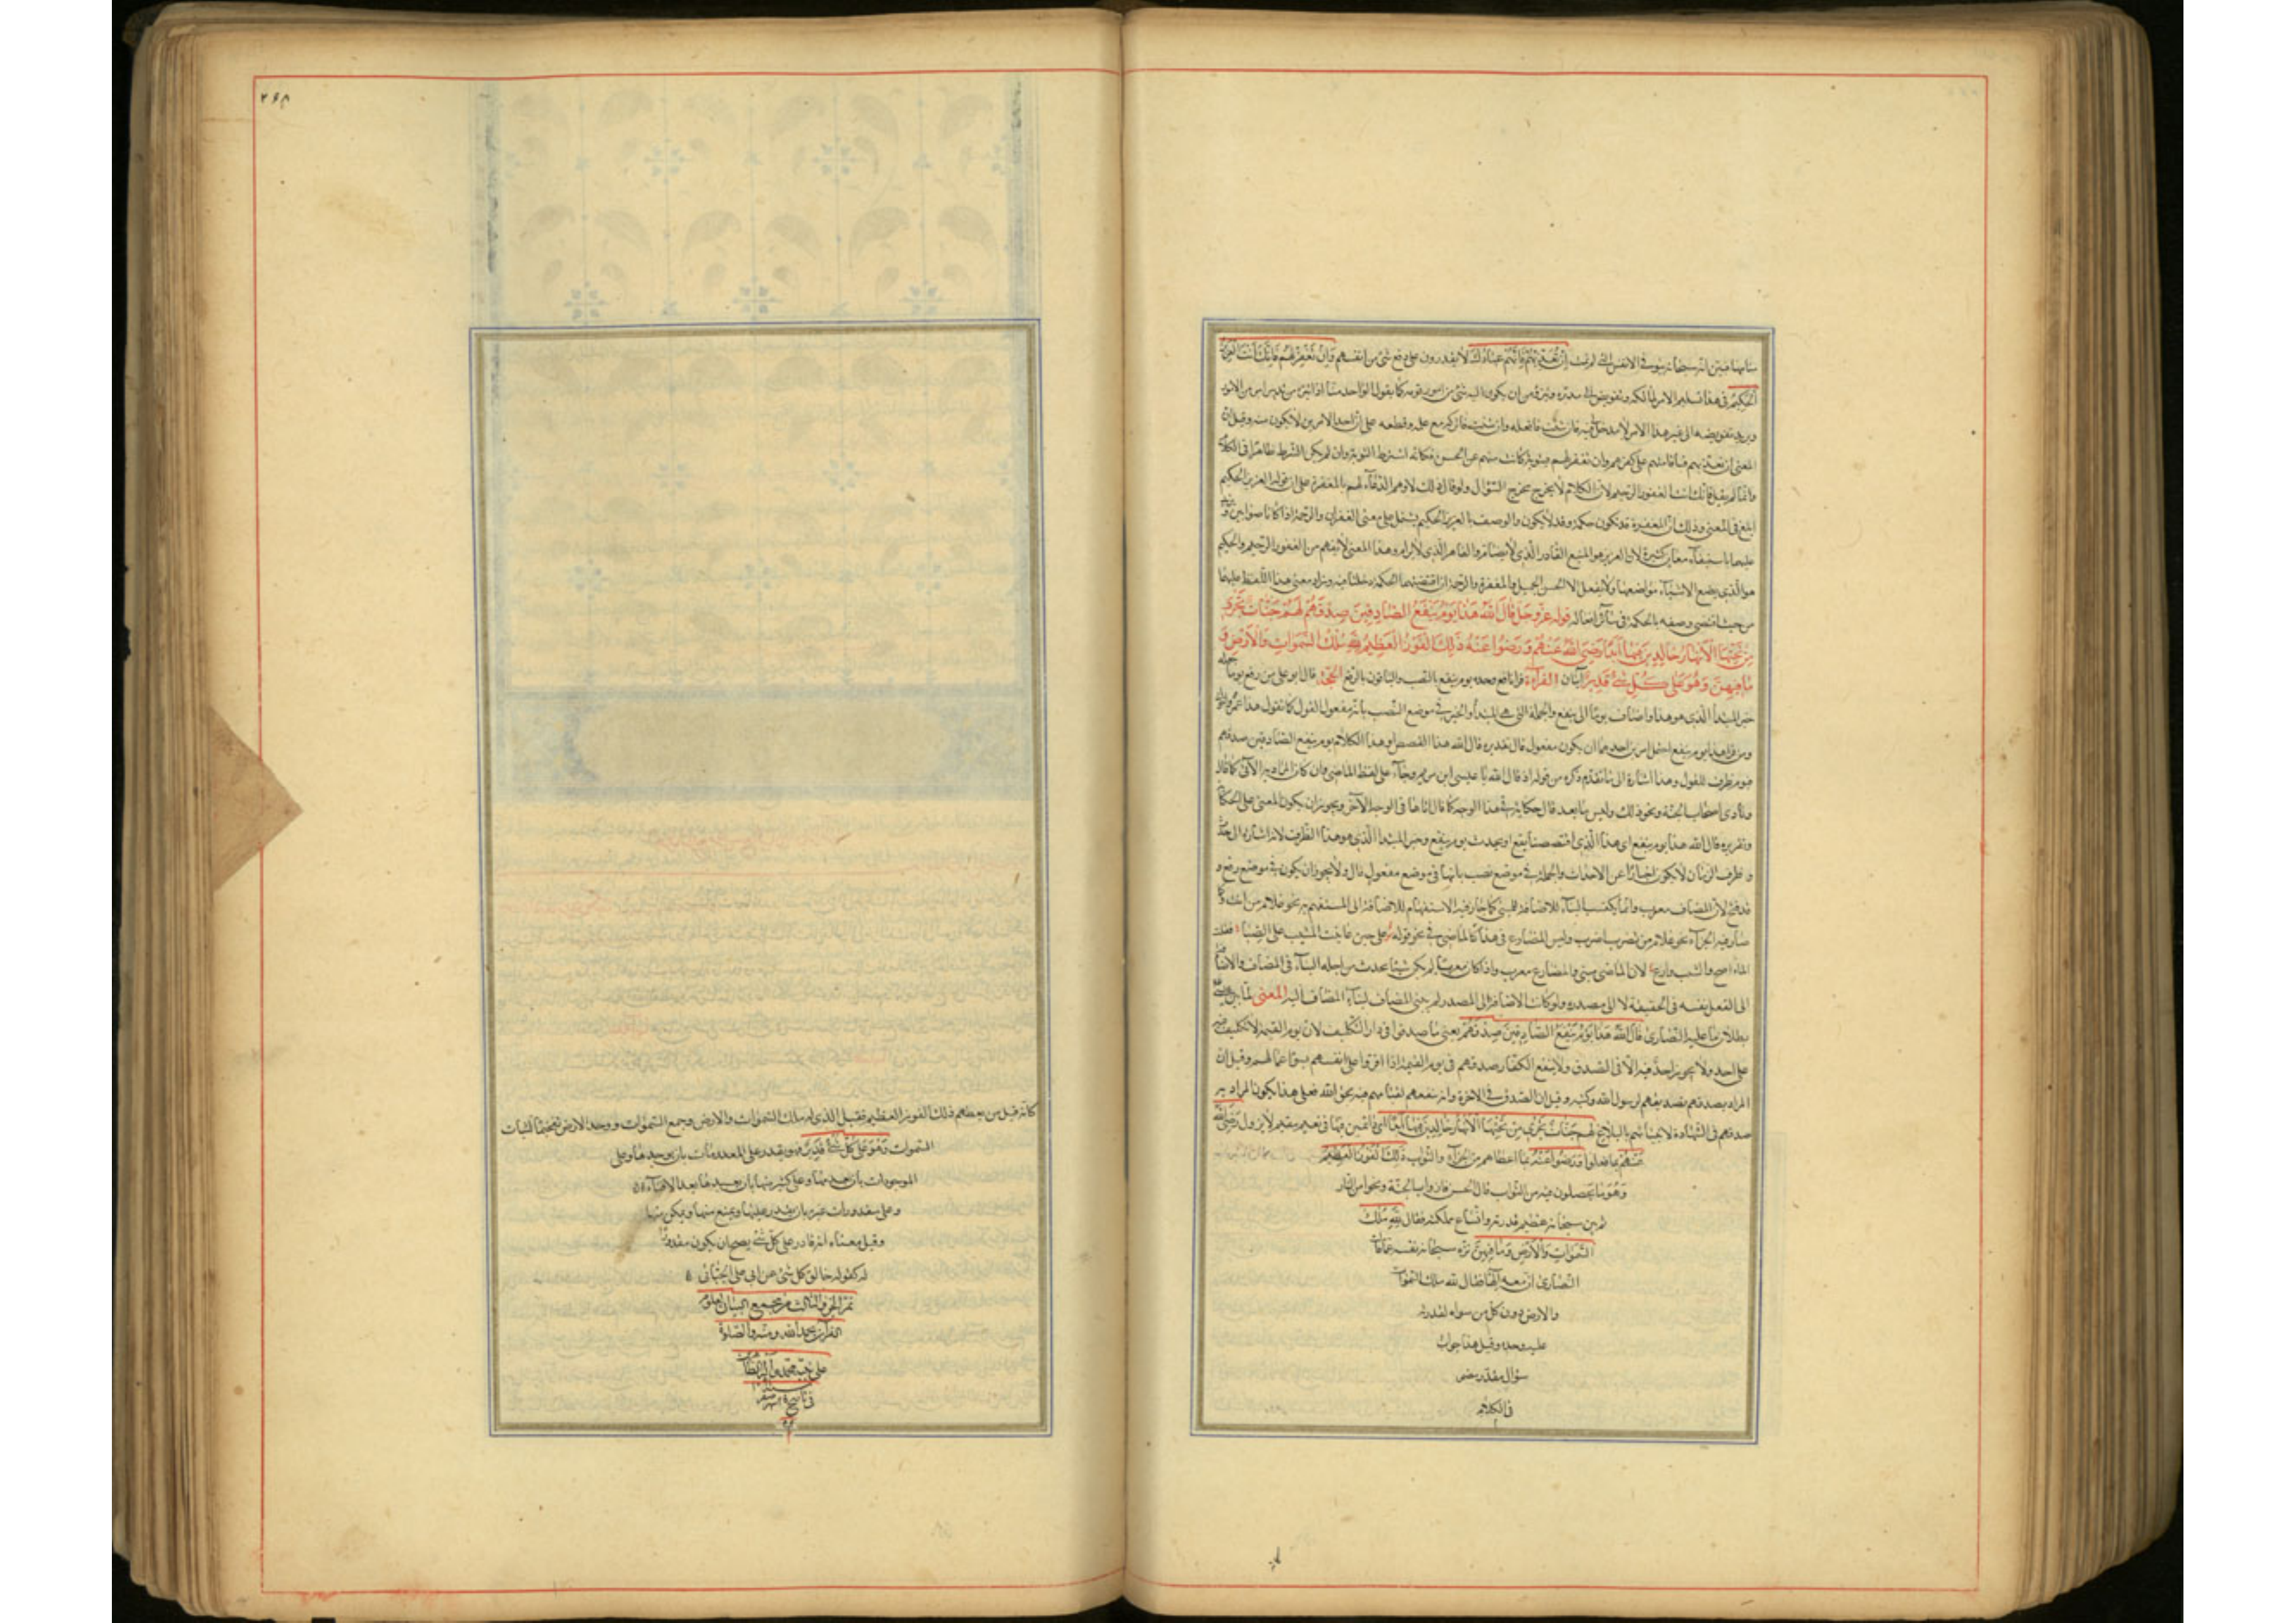 ان تعذبهم فانهم عبادك لا يقدرون على دفع شئ من انفسهم وان تغفر لهم فانك انت العزيز
الحكيم فى هذا تسليم الامر لمالكه وتفويض الى مدبره وتبرؤ من ان يكون اليه شئ من امور قومه كما يقول الواحد منا اذا تبرأ من تدبير امر من الامور
ويريد تفويضه الى غيره هذا الامر لا مدخل لى فيه فان شئت فافعله وان شئت فاتركه مع علمه وقطعه على ان احد الامرين لا يكون منه وقيل ان
المعنى ان تعذبهم فباقامتهم على كفرهم وان تغفر لهم فبتوبة كانت منهم عن الحسن فكانه اشترط التوبة وان لم يكن الشرط ظاهرا فى الكلام
وانما لم يقل فانك انت الغفور الرحيم لان الكلام لم يخرج مخرج السؤال ولو قال ذلك لاوهم الدعاء لهم بالمغفرة على ان قوله العزيز الحكيم
ابلغ فى المعنى وذلك ان المغفرة قد تكون حكمة وقد لا يكون والوصف بالعزيز الحكيم يشتمل على معنى الغفران والرحمة اذا كانا صوابين
عليهما باستيفاء معان كثيرة لان العزيز هو المنيع القادر الذى لا يضام والقاهر الذى لا يرام وهذا المعنى لا يفهم من الغفور الرحيم والحكيم
هو الذى يضع الاشياء مواضعها ولا يفعل الا الحسن الجميل فالمغفرة والرحمة ان اقتضتهما الحكمة دخلتا فيه وزاد معنى هذا اللفظ عليهما
من حيث اقتضى وصفه بالحكمة فى سائر افعاله قوله عز وجل قال الله هذا يوم ينفع الصادقين صدقهم لهم جنات تجرى
من تحتها الانهار خالدين فيها ابدا رضى الله عنهم ورضوا عنه ذلك الفوز العظيم لله ملك السموات والارض و
ما فيهن وهو على كل شئ قدير آيتان القرآءة قرأ نافع وحده يوم ينفع بالنصب والباقون بالرفع الحجة قال ابو على من رفع يوما
خبر المبتدأ الذى هو هذا واضاف يوما الى ينفع والجملة التى هى المبتدأ والخبر فى موضع النصب بانه مفعول القول كما تقول هذا عمرو
ومن قرأ هذا يوم ينفع احتمل امرين احدهما ان يكون مفعول قال تقديره قال الله هذا القصص او هذا الكلام يوم ينفع الصادقين صدقهم
فيوم ظرف للقول وهذا اشارة الى ما تقدم ذكره من قوله اذ قال الله يا عيسى ابن مريم وجاء على لفظ الماضى وان كان المراد به الآتى كما قال
ونادى اصحاب الجنة ونحو ذلك وليس ما بعد قال حكاية فى هذا الوجه كما كان اياها فى الوجه الآخر ويجوز ان يكون المعنى على الحكاية
وتقديره قال الله هذا يوم ينفع اى هذا الذى اقتصصنا يقع او يحدث يوم ينفع وخبر المبتدا الذى هو هذا الظرف لانه اشارة الى حدث
وظرف الزمان لا يكون اخبارا عن الاحداث والجملة فى موضع نصب بانها فى موضع مفعول قال ولا يجوز ان يكون فى موضع رفع و
قد فتح لان المضاف معرب وانما يكتسب البناء للاضافة للمبنى كما جاز فيه الاستفهام للاضافة الى المستفهم به نحو غلام من انت وكما
صار فيه الجزاء نحو غلام من تضرب اضرب وليس المضارع فى هذا كالماضى فى نحو قوله على حين عاتبت المشيب على الصبا فقلت
الما اصح والشيب وازع لان الماضى مبنى والمضارع معرب واذا كان معربا لم يكن شئ يحدث من اجله البناء فى المضاف والاضافة
الى الفعل نفسه فى الحقيقة لا الى مصدره ولو كانت الاضافة الى المصدر لم يبن المضاف لبناء المضاف اليه المعنى لما بين
بطلان ما عليه النصارى قال الله هذا يوم ينفع الصادقين صدقهم يعنى ما صدقوا فى دار التكليف لان يوم القيمة لا تكليف فيه
على احد ولا يخبر احد فيه الا فى الصدق ولا ينفع الكفار صدقهم فى يوم القيمة اذا اقروا على انفسهم بسوء اعمالهم وقيل ان
المراد بصدقهم تصديقهم لرسول الله وكتبه وقيل ان الصدق فى الاخرة وانه ينفعهم لقيامهم فيه بحق الله فعلى هذا يكون المراد به
صدقهم فى الشهادة لانبيائهم بالبلاغ لهم جنات تجرى من تحتها الانهار خالدين فيها ابدا اى دائمين فيها فى نعيم مقيم لا يزول رضى الله
عنهم بما فعلوا ورضوا عنه بما اعطاهم من الجزاء والثواب ذلك الفوز العظيم
وهو ما يحصلون فيه من الثواب قال الحسن فازوا بالجنة ونجوا من النار
ثم بين سبحانه عظيم قدرته واتساع مملكته فقال لله ملك
السموات والارض وما فيهن نزه سبحانه نفسه عما قالت
النصارى ان معه الها فقال لله ملك السموات
والارض دون كل من سواه لقدرته
عليه وحده وقيل هذا جواب
سؤال مقدر مضى
فى الكلام
٢٩٨
كانه قيل من يعطيهم ذلك الفوز العظيم فقيل الذى له ملك السموات والارض وجمع السموات ووحد الارض تفخيما لشان
السموات وهو على كل شئ قدير فهو يقدر على المعدومات بان يوجدها وعلى
الموجودات بان يعدمها وعلى كثير منها بان يعيدها بعد الافناء
وعلى مقدورات غيره بان يقدر عليها ويمنع منها ويمكن منها
وقيل معناه انه قادر على كل شئ يصح ان يكون مقدورا
له كقوله خالق كل شئ عن ابى على الجبائى
تم الجزو الثالث من مجمع البيان لعلوم
القرآن بحمد الله ومنه والصلوة
على نبيه محمد وآله الطاهرين
فى تاسع شهر صفر